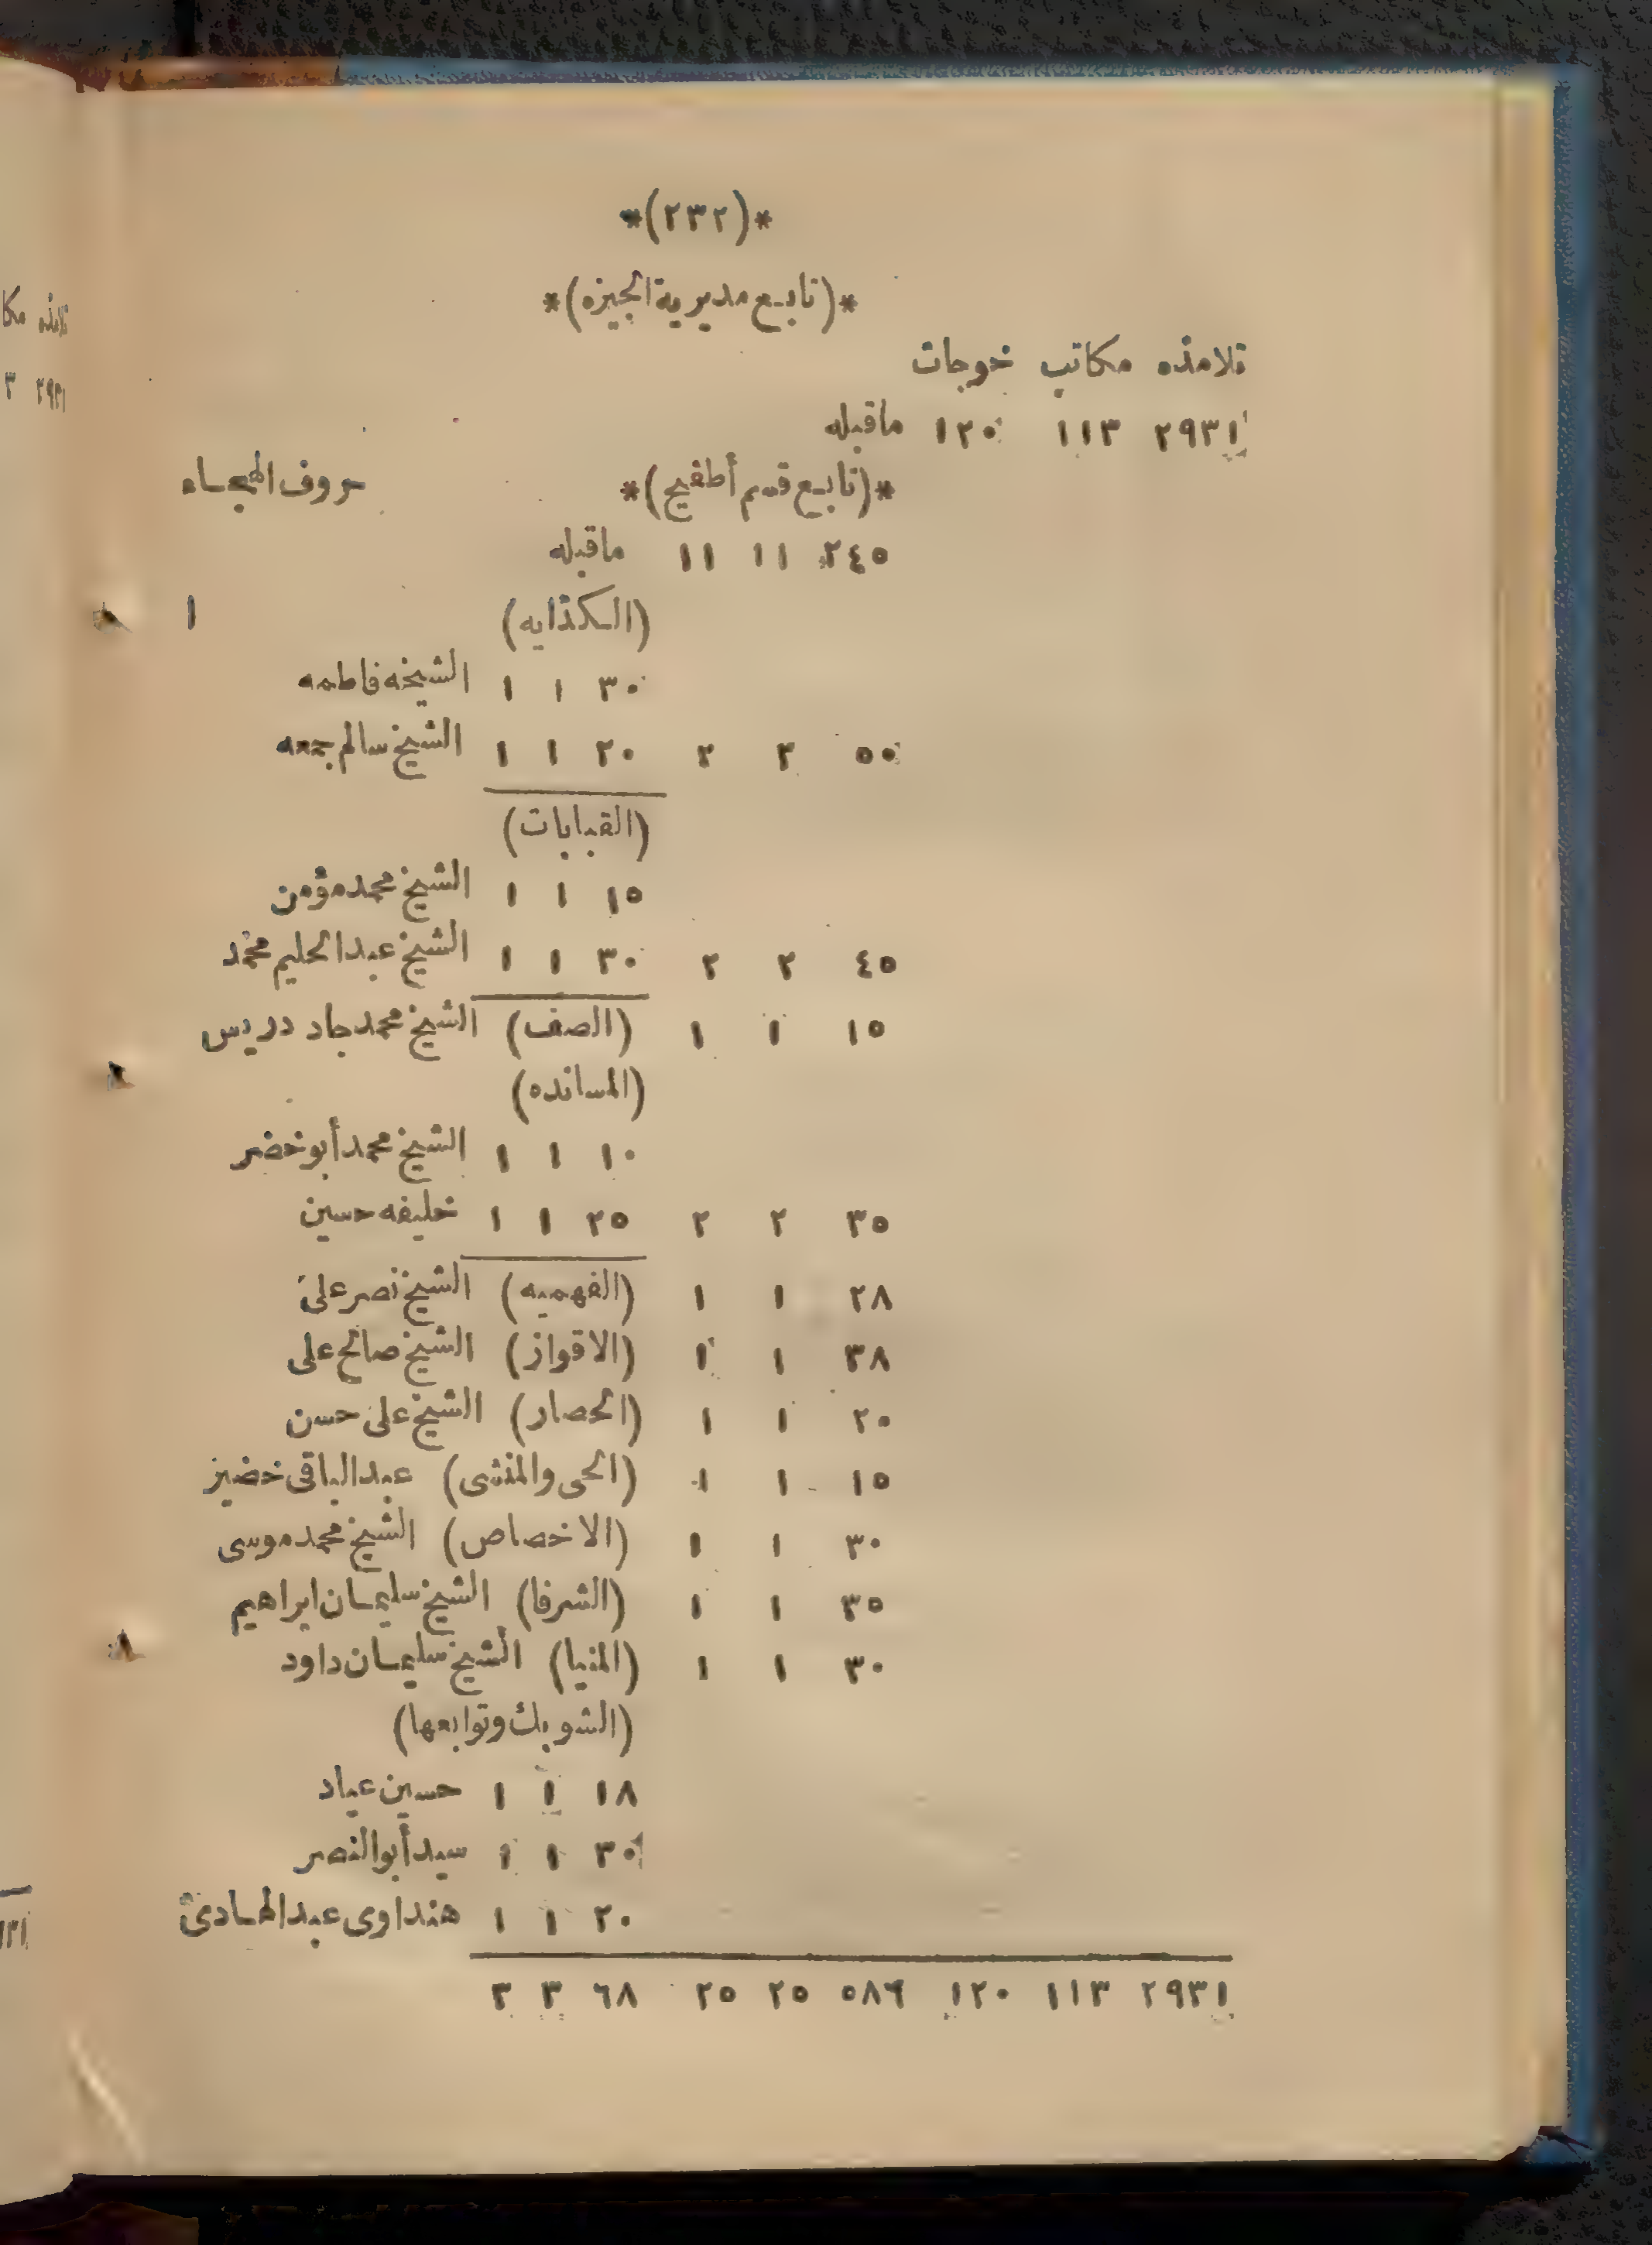 *(٢٣٢)*
*(تابع مديرية الجيزه)*
تلامذه مكاتب خوجات
٢٩٣١ ١١٣ ١٢٠ ماقبله
*(تابع قسم أطفيح)* حروف الهجاء
٢٤٥ ١١ ١١ ماقبله
(الكدايه) ١
٣٠ ١ ١ الشيخه فاطمه
٥٠ ٢ ٢ ٢٠ ١ ١ الشيخ سالم جمعه
(القبابات)
١٥ ١ ١ الشيخ محمد مؤمن
٤٥ ٢ ٢ ٣٠ ١ ١ الشيخ عبد الحليم محمد
١٥ ١ ١ (الصف) الشيخ محمد جاد دريس
(المسانده)
١٠ ١ ١ الشيخ محمد أبو خضر
٣٥ ٢ ٢ ٢٥ ١ ١ خليفه حسين
٢٨ ١ ١ (الفهميه) الشيخ نصر على
٣٨ ١ ١ (الاقواز) الشيخ صالح على
٢٠ ١ ١ (الحصار) الشيخ على حسن
١٥ ١ ١ (الحى والمنشى) عبد الباقى خضير
٣٠ ١ ١ (الاخصاص) الشيخ محمد موسى
٣٥ ١ ١ (الشرفا) الشيخ سليمان ابراهيم
٣٠ ١ ١ (المنيا) الشيخ سليمان داود
(الشوبك وتوابعها)
١٨ ١ ١ حسين عياد
٣٠ ١ ١ سيد أبو النصر
٢٠ ١ ١ هنداوى عبد الهادى
٢٩٣١ ١١٣ ١٢٠ ٥٨٦ ٢٥ ٢٥ ٦٨ ٣ ٣
تلامذه
٢٩٣١ ٣